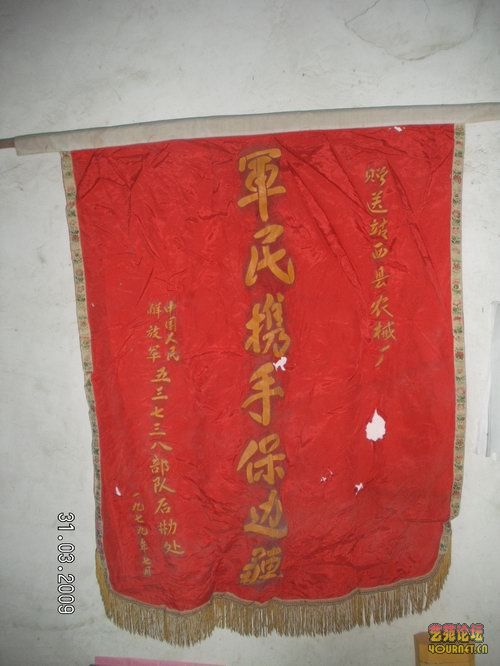 赠送靖西县农械厂
軍民携手保边疆
中国人民
解放军五三七三八部队后勤处
一九七九年七月
31.03.2009
艺苑论坛
YOURNET.CN